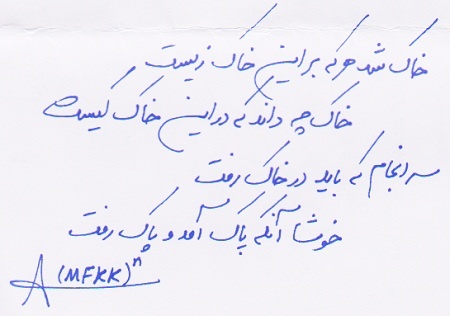 خاک شد هر که بر این خاک زیست
خاک چه داند که در این خاک کیست
سرانجام که باید در خاک رفت
خوشا آنکه پاک آمد و پاک رفت
(MFKK)ⁿ